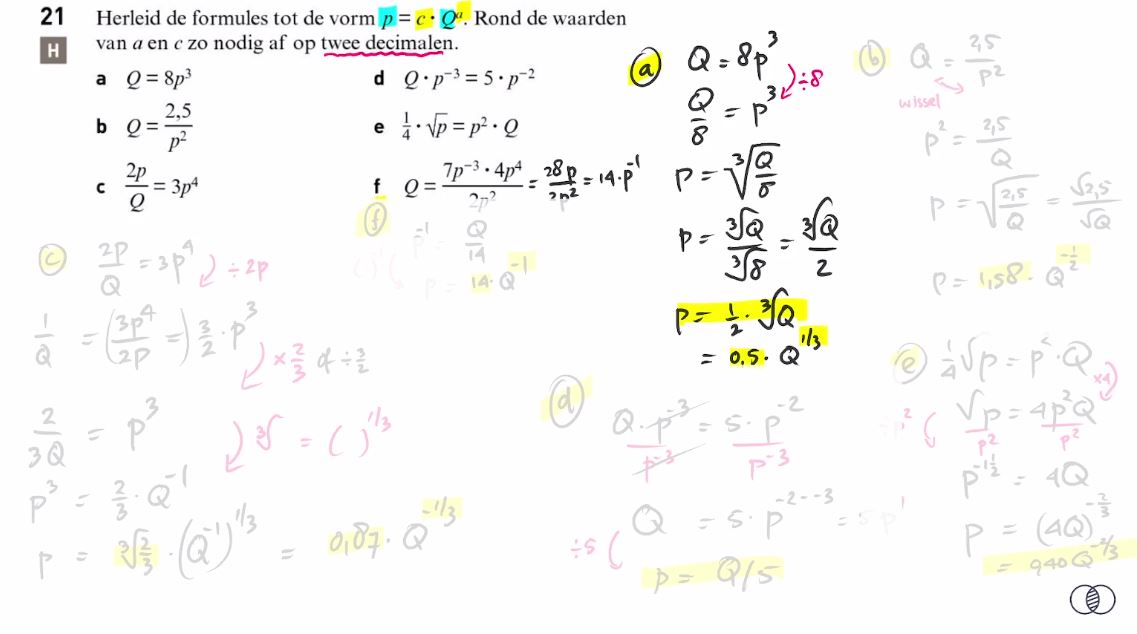 21 Herleid de formules tot de vorm p = c · Qᵃ. Rond de waarden
H van a en c zo nodig af op twee decimalen.
a Q = 8p³
b Q = 2,5/p²
c 2p/Q = 3p⁴
d Q · p⁻³ = 5 · p⁻²
e 1/4 · √p = p² · Q
f Q = 7p⁻³ · 4p⁴/2p² = 28p/2p² = 14 · p⁻¹
a Q = 8p³
÷8
Q/8 = p³
p = ∛(Q/8)
p = ∛Q/∛8 = ∛Q/2
p = 1/2 · ∛Q
= 0,5 · Q^1/3
b Q = 2,5/p²
wissel
p² = 2,5/Q
p = √(2,5/Q) = √2,5/√Q
p = 1,58 · Q^-1/2
c 2p/Q = 3p⁴
÷2p
1/Q = (3p⁴/2p =) 3/2 · p³
×2/3 of ÷3/2
2/3Q = p³
∛ = ( )^1/3
p³ = 2/3 · Q⁻¹
p = ∛2/3 · (Q⁻¹)^1/3 = 0,87 · Q^-1/3
f p⁻¹ = Q/14
( )⁻¹
p = 14 · Q⁻¹
d Q · p⁻³/p⁻³ = 5 · p⁻²/p⁻³
Q = 5 · p^-2--3 = 5p¹
÷5
p = Q/5
e 1/4 √p = p² · Q
×4
√p/p² = 4p²Q/p²
÷p²
p^-1½ = 4Q
p = (4Q)^-2/3
= 0,40 Q^-2/3